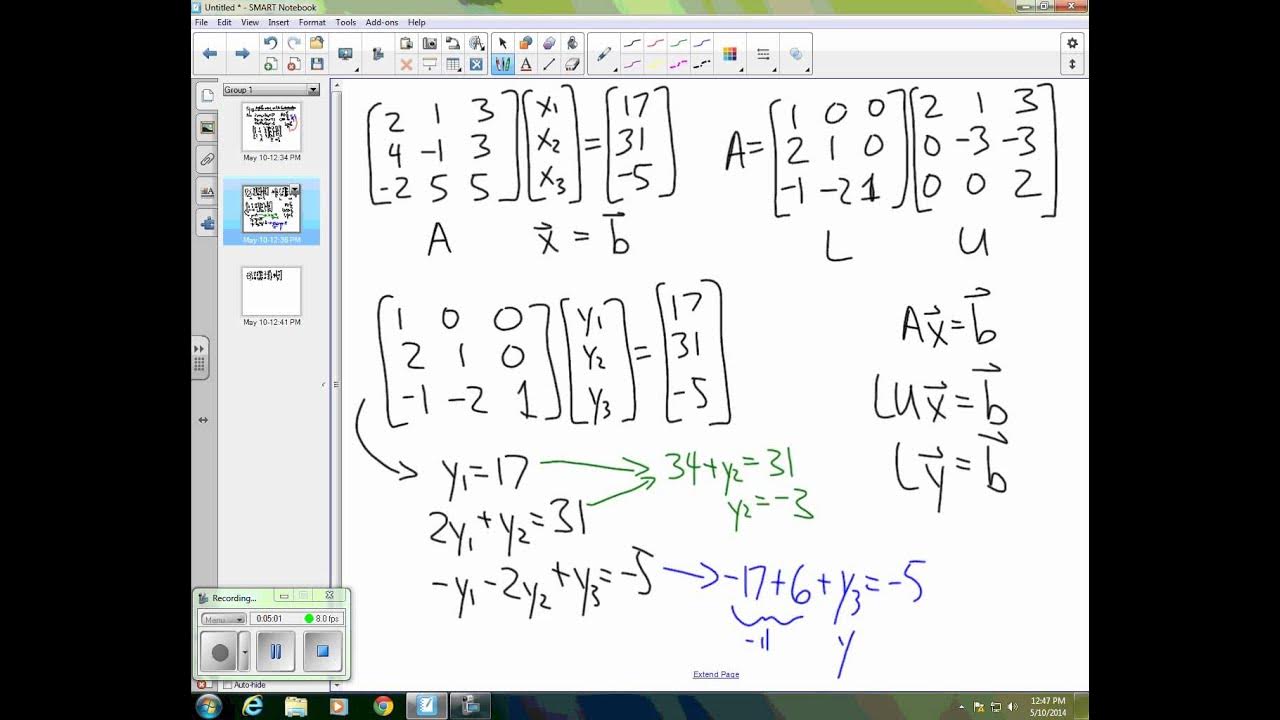 Untitled * - SMART Notebook
File Edit View Insert Format Tools Add-ons Help
Group 1
May 10-12:34 PM
May 10-12:36 PM
May 10-12:41 PM
2 1 3 x₁ 17
4 -1 3 x₂ = 31
-2 5 5 x₃ -5
A x⃗ = b⃗
1 0 0 2 1 3
A= 2 1 0 0 -3 -3
-1 -2 1 0 0 2
L U
1 0 0 y₁ 17
2 1 0 y₂ = 31
-1 -2 1 y₃ -5
Ax⃗=b⃗
LUx⃗=b⃗
Ly⃗=b⃗
y₁=17
34+y₂=31
y₂=-3
2y₁+y₂=31
-y₁-2y₂+y₃=-5
-17+6+y₃=-5
-11
y
Extend Page
Recording...
Menu
0:05:01
8.0 fps
Auto-hide
12:47 PM
5/10/2014